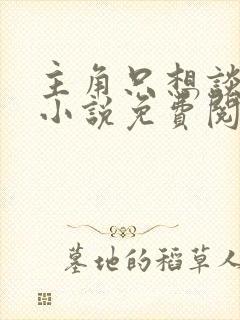 主角只想談
小說免費閱
墓地的稻草人